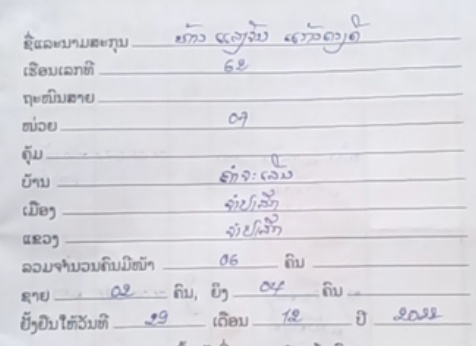 ຊື່ແລະນາມສະກຸນ ທ້າວ ແສງຈັນ
ເຮືອນເລກທີ 62
ຖະໜົນສາຍ
ໜ່ວຍ 07
ຄຸ້ມ
ບ້ານ ຄຳຈະເລີນ
ເມືອງ ຈຳປາສັກ
ແຂວງ ຈຳປາສັກ
ລວມຈຳນວນຄົນມີໜ້າ 06 ຄົນ
ຊາຍ 02 ຄົນ, ຍິງ 04 ຄົນ
ຢັ້ງຢືນໃຫ້ວັນທີ 29 ເດືອນ 12 ປີ 2022